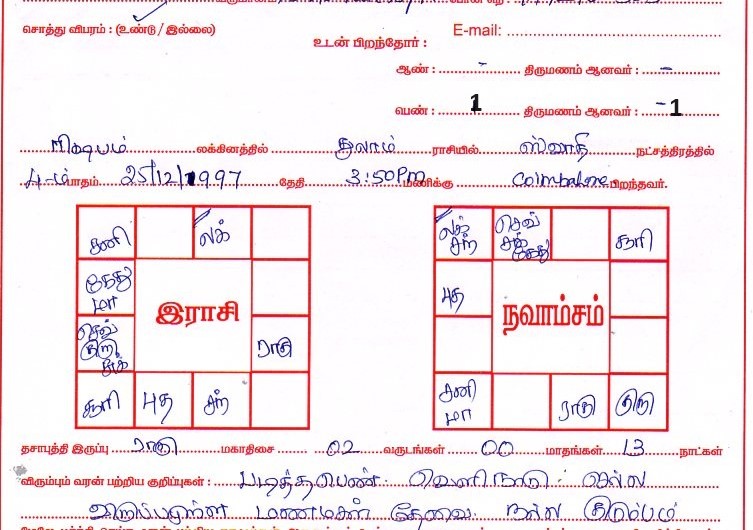 சொத்து விபரம் : (உண்டு / இல்லை)
E-mail:
உடன் பிறந்தோர் :
ஆண் : - திருமணம் ஆனவர் : -
பெண் : 1 திருமணம் ஆனவர் : - 1
ரிஷபம் லக்கினத்தில் துலாம் ராசியில் ஸ்வாதி நட்சத்திரத்தில்
4-ம் பாதம் 25/12/1997 தேதி 3:50 PM மணிக்கு Coimbatore பிறந்தவர்.
சனி லக்
கேது
மா
இராசி
செவ்
குரு
சுக்
ராகு
சூரி புத சந்
லக்
சந்
செவ்
சுக்
கேது
சூரி
புத
நவாம்சம்
சனி
மா
ராகு குரு
தசாபுத்தி இருப்பு ராகு மகாதிசை 02 வருடங்கள் 00 மாதங்கள் 13 நாட்கள்
விரும்பும் வரன் பற்றிய குறிப்புகள் : படித்த பெண். வெளிநாடு செல்ல
விருப்பமுள்ள மணமகள் தேவை. நல்ல குடும்பம்